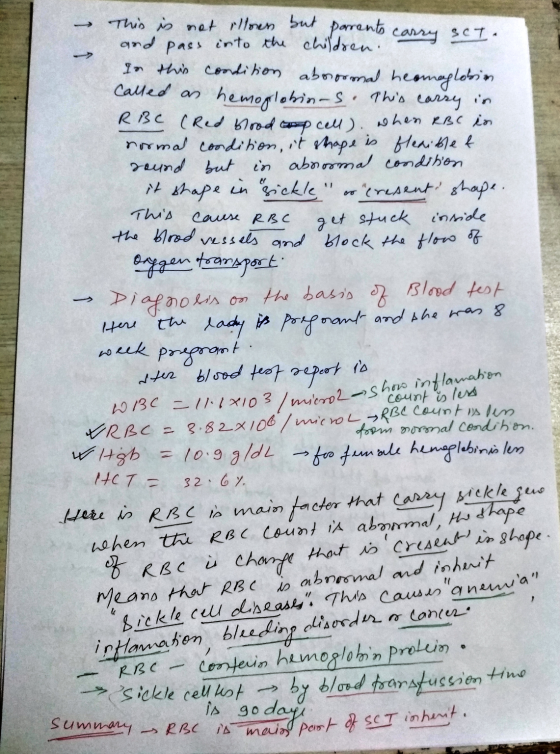 → This is not illness but parents carry SCT.
and pass into the children.
→
In this condition abnormal heamoglobin
called as hemoglobin-S. This carry in
RBC (Red blood cell). when RBC in
normal condition, it shape is flexible &
round but in abnormal condition
it shape in "sickle" or "cresent" shape.
This cause RBC get stuck inside
the blood vessels and block the flow of
oxygen transport.
→ Diagnosis on the basis of Blood test
Here the lady is pregnant and she was 8
week pregnant.
Her blood test report is
WBC = 11.1×103/microL → Show inflamation
count is less
✓ RBC = 3.82×106/microL → RBC count is less
from normal condition.
✓ Hgb = 10.9 g/dL → for female hemeglobin is less
HCT = 32.6%
Here is RBC is main factor that carry sickle gene
when the RBC count is abnormal, the shape
of RBC is change that is 'cresent' in shape.
Means that RBC is abnormal and inherit
"Sickle cell diseases". This causes "anemia",
inflamation, bleeding disorder or cancer.
– RBC – contain hemoglobin protein.
→ Sickle cell test → by blood transfussion time
is 90 days
Summary → RBC is main part of SCT inherit.